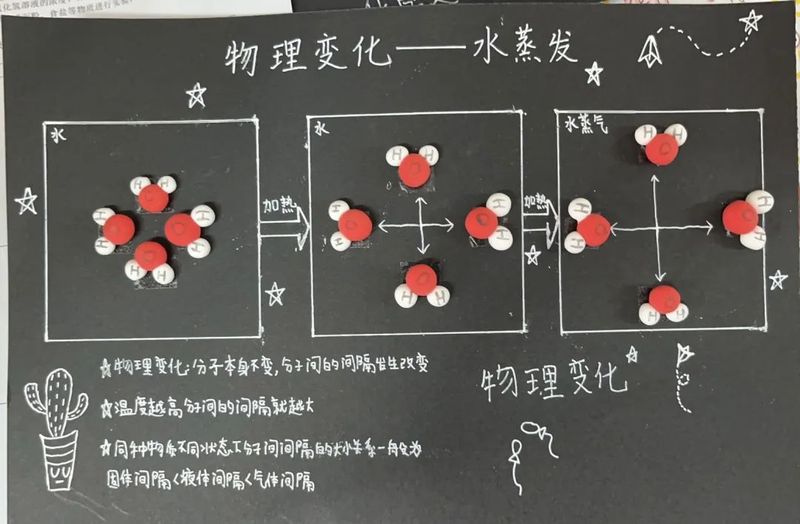 食盐等物质进行实验
物理变化——水蒸发
水
水
水蒸气
加热
加热
H H O
H O H
O H H
O H H
H H O
H O H
O H H
O H H
H H O
H O H
O H H
O H H
☆物理变化:分子本身不变,分子间的间隔发生改变
☆温度越高分子间的间隔就越大
☆同种物质不同状态下分子间间隔的大小关系一般为
固体间隔<液体间隔<气体间隔
物理变化